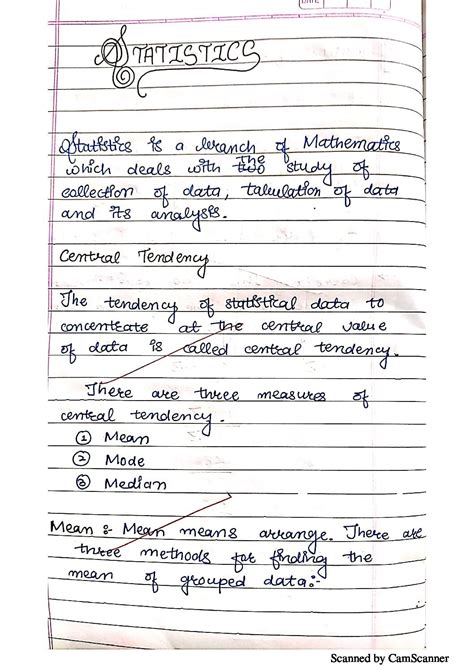 DATE
STATISTICS
Statistics is a branch of Mathematics
which deals with the study of
collection of data, tabulation of data
and its analysis.
Central Tendency
The tendency of statistical data to
concentrate at the central value
of data is called central tendency.
There are three measures of
central tendency.
① Mean
② Mode
③ Median
Mean :- Mean means arrange. There are
three methods for finding the
mean of grouped data:-
Scanned by CamScanner